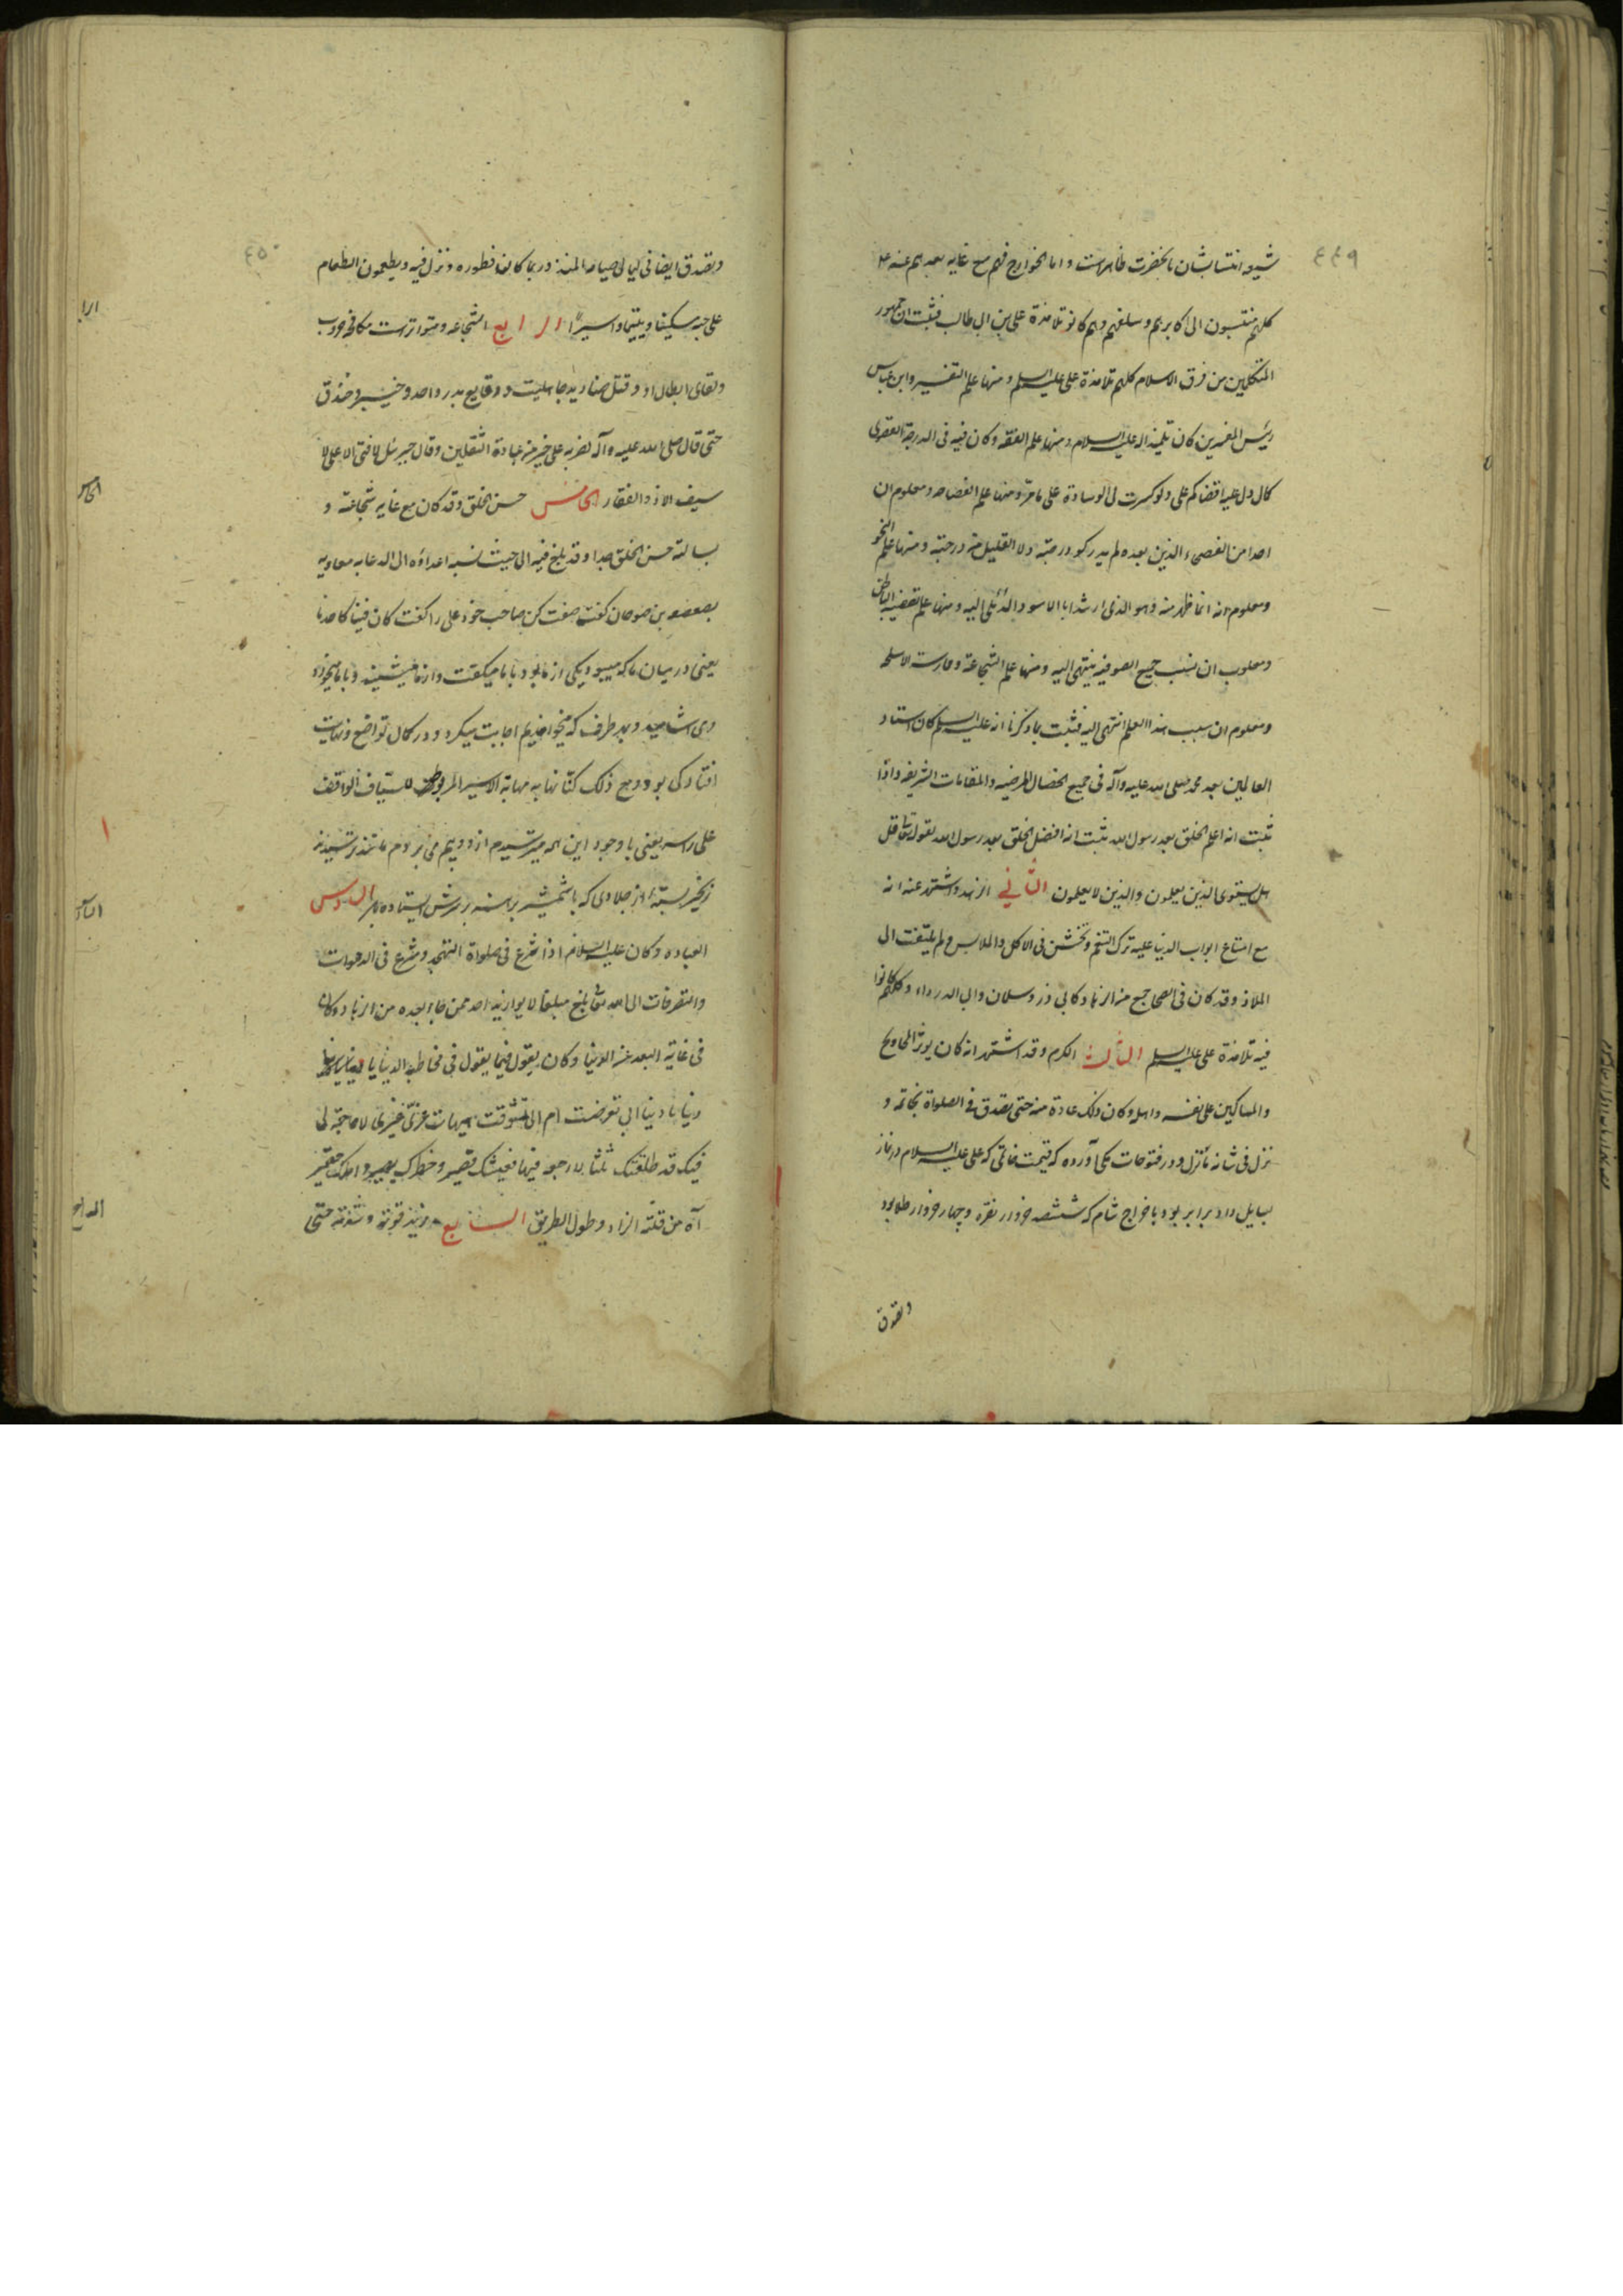 ٤٤٩
شیعه انتسابشان بانحضرت ظاهرست و اما الخوارج فهم مع غایه بعدهم عنه
کلهم منتسبون الی اکابرهم و سلفهم و هم کانو تلامذة علی بن ابی طالب فثبت ان جمهور
المتکلمین من فرق الاسلام کلهم تلامذة علی علیه السلم و منها علم التفسیر و ابن عباس
رئیس المفسرین کان تلمیذا له علیه السلام و منها علم الفقه و کان فیه فی الدرجة القصوی
کما دل علیه اقضاکم علی و لو کسرت لی الوسادة علی ما مرّ و منها علم الفصاحه و معلوم ان
احدا من الفصحاء الذین بعده لم یدرکو درجته و لا القلیل من درجته و منها علم النحو
و معلوم انه انما ظهر منه و هو الذی ارشد ابا الاسود الدّئلی الیه و منها علم تصفیه الباطن
و معلوم ان نسب جمیع الصوفیه ینتهی الیه و منها علم الشجاعة و ممارسة الاسلحه
و معلوم ان نسب هذا العلم انتهی الیه فثبت بما ذکرنا انه علیه السلم کان استاد
العالمین بعد محمد صلی الله علیه و آله فی جمیع الخصال المرضیه و المقامات الشریفه و اذا
ثبت انه اعلم الخلق بعد رسول الله ثبت انه افضل الخلق بعد رسول الله لقوله تعا قل
هل یستوی الذین یعلمون و الذین لا یعلمون الثّانی الزهد و اشتهر عنه انه
مع اتساع ابواب الدنیا علیه ترک التنعم و تخشن فی الاکل و الملابس و لم یلتفت الی
الملاذ و قد کان فی الصحابه جمع من الزهاد کابی ذر و سلمان و ابی الدرداء و کلهم کانوا
فیه تلامذة علی علیه السلم الثالث الکرم و قد اشتهر انه کان یوثر المحاویج
و المساکین علی نفسه و اهله و کان ذلک عادة منه حتی تصدق فی الصلوة بخاتمه و
نزل فی شانه ما نزل و در فتوحات مکی آورده که قیمت خاتمی که علی علیه السلام در نماز
بسایل داد برابر بود با خراج شام که ششصد خروار نقره و چهار خروار طلا بود
و تصدق
٤٥٠
و تصدق ایضا فی لیالی صیامه المنذر و ربما کان فطوره و نزل فیه و یطعمون الطعام
علی حبه مسکینا و یتیما و اسیرا الرابع الشجاعه و متواترست مکافحه حروب
و لقای ابطال او و قتل صنادید جاهلیت و وقایع بدر و احد و خیبر و خندق
حتی قال صلی الله علیه و آله لضربة علی خیر من عبادة الثقلین و قال جبرئیل لا فتی الا علی لا
سیف الا ذو الفقار الخامس حسن الخلق و قد کان مع غایه شجاعته و
بسالته حسن الخلق جدا و قد بلغ فیه الی حیث نسبه اعداؤه الی الدعابه معاویه
بصعصعه بن صوحان گفت صفت کن صاحب خود علی را گفت کان فینا کاحدنا
یعنی در میان ما که میبود یکی از ما بود با ما میگفت و از ما میشنید و با ما میخورد
و می اشامید و بهر طرف که میخواندیم اجابت میکرد و در کمال تواضع و نهایت
افتادگی بود و مع ذلک کنّا نهابه مهابة الاسیر المربوط للسّیاف الواقف
علی راسه یعنی با وجود این همه میترسیدم از او و بیم می بردم مانند ترسیدن
زنجیر بسته از جلادی که با شمشیر برهنه بر سرش ایستاده باشد السادس
العباده و کان علیه السلام اذا شرع فی صلواة التهجد و شرع فی الدعوات
و التضرعات الی الله تعا بلغ مبلغا لا یوازنه احد ممن جاء بعده من الزهاد و کان
فی غایة البعد عن الدنیا و کان یقول فیما یقول فی مخاطبه الدنیا یا
دنیا یا دنیا ابی تعرضت ام الی تشوقت هیهات غرّی غیری لا حاجة لی
فیک قد طلقتک ثلثا لا رجعه فیها فعیشک قصیر و خطرک یسیر و املک حقیر
آه من قلة الزاد و طول الطریق السابع مزید قوته و شدته حتی
الرا
الخامس
السا
السابع